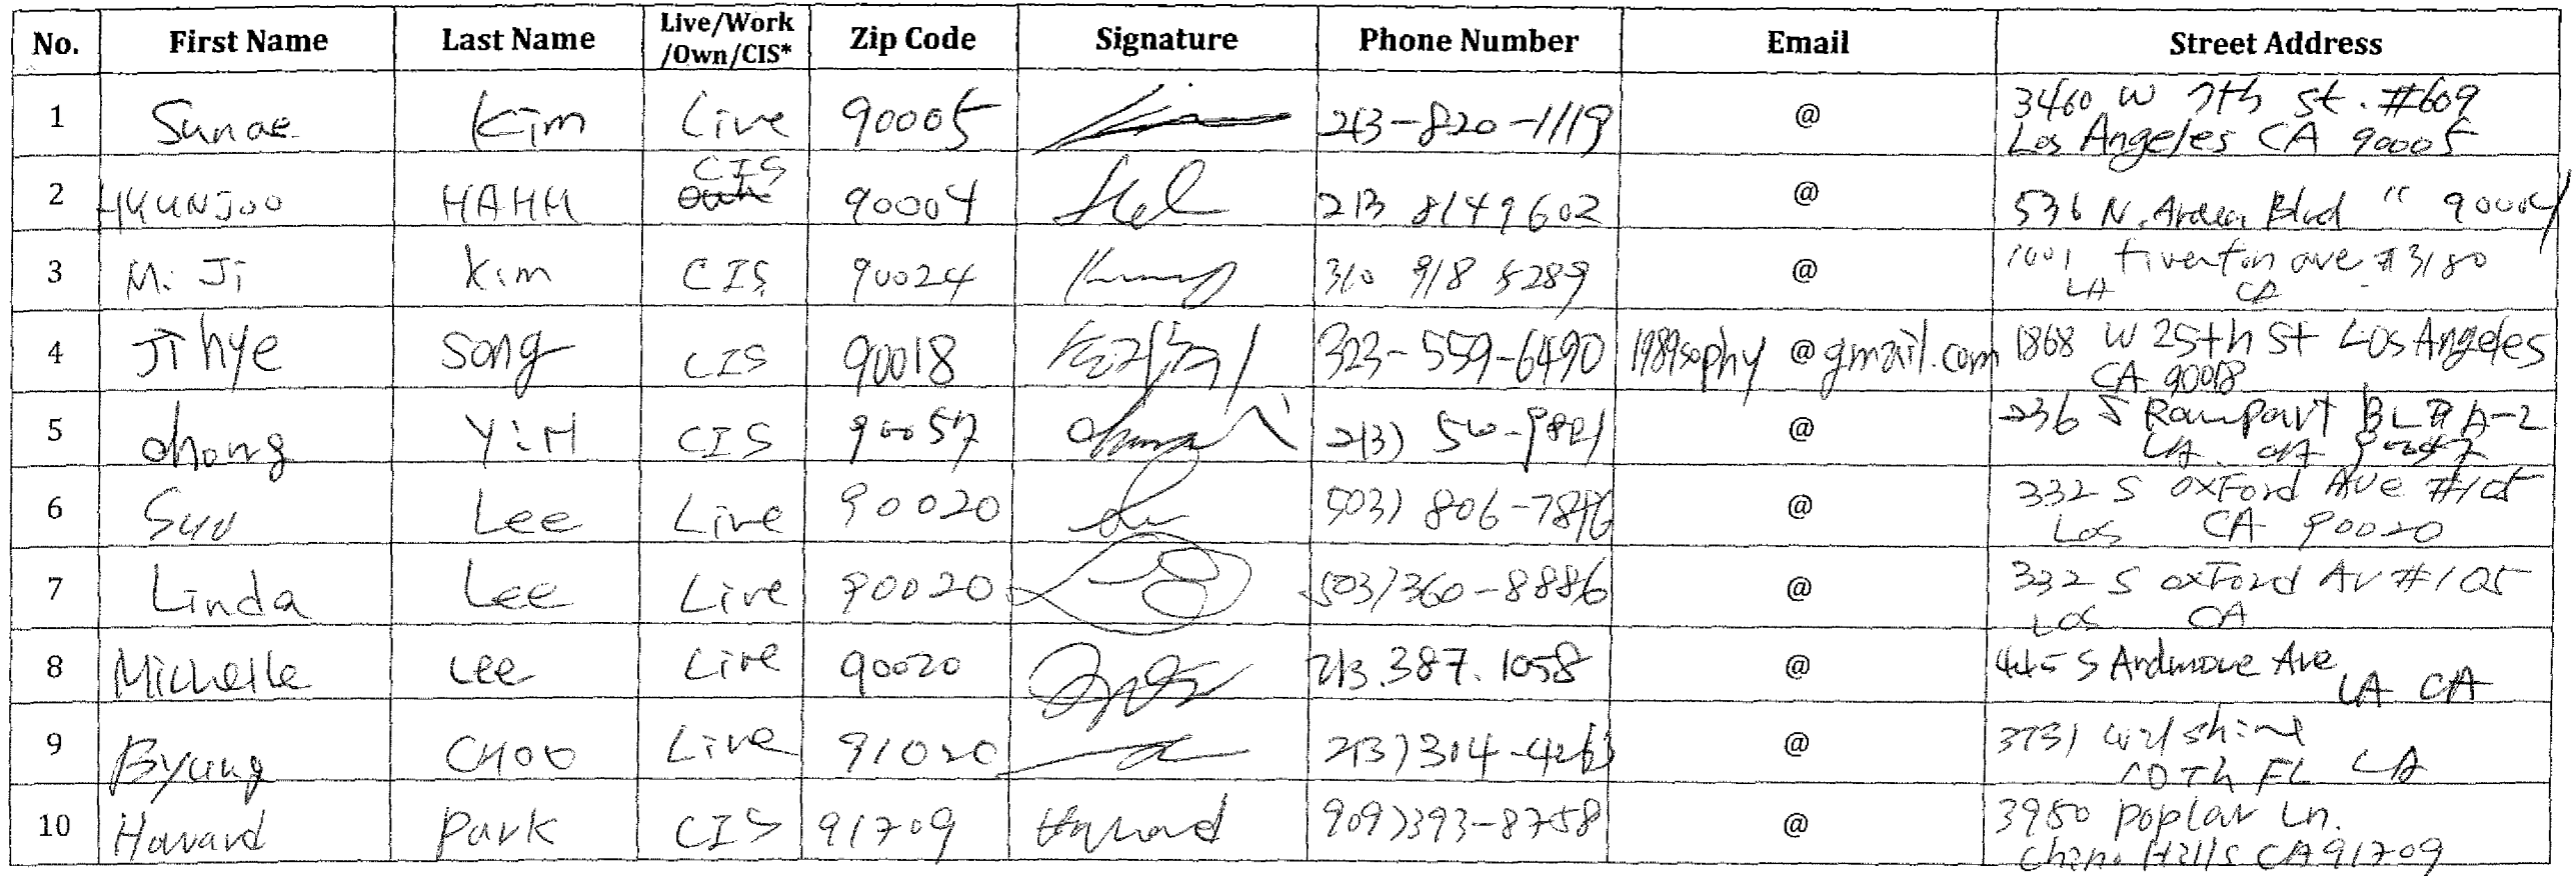 No. First Name Last Name Live/Work/Own/CIS* Zip Code Signature Phone Number Email Street Address
1 Sunae Kim Live 90005 213-820-1119 @ 3460 W 7th St. #609
Los Angeles CA 90005
2 HYUNJOO HAHM CIS 90004 213 8149602 @ 536 N. Arden Blvd " 90004
3 Mi Ji Kim CIS 90024 310 918 5289 @ Tiverton ave #3180
LA CA
4 Jihye Song CIS 90018 323-559-6490 1989sophy @gmail.com 1868 W 25th St Los Angeles
CA 90018
5 chong YiM CIS 90057 213) @ 236 S Rampart BL # A-2
LA
6 Lee Live 90020 503) 806- @ 332 S oxford Ave #105
Los CA 90020
7 Linda Lee Live 90020 503)360-8886 @ 332 S oxford Av #105
Los CA
8 Michelle Lee Live 90020 213.387.1058 @ 445 S Ardmore Ave
LA CA
9 Byung CHOO Live 91020 213)304- @ 3731 wilshire
10Th FL LA
10 Howard Park CIS 91709 Howard 909)393-8758 @ 3950 Poplar Ln.
Chino Hills CA 91709